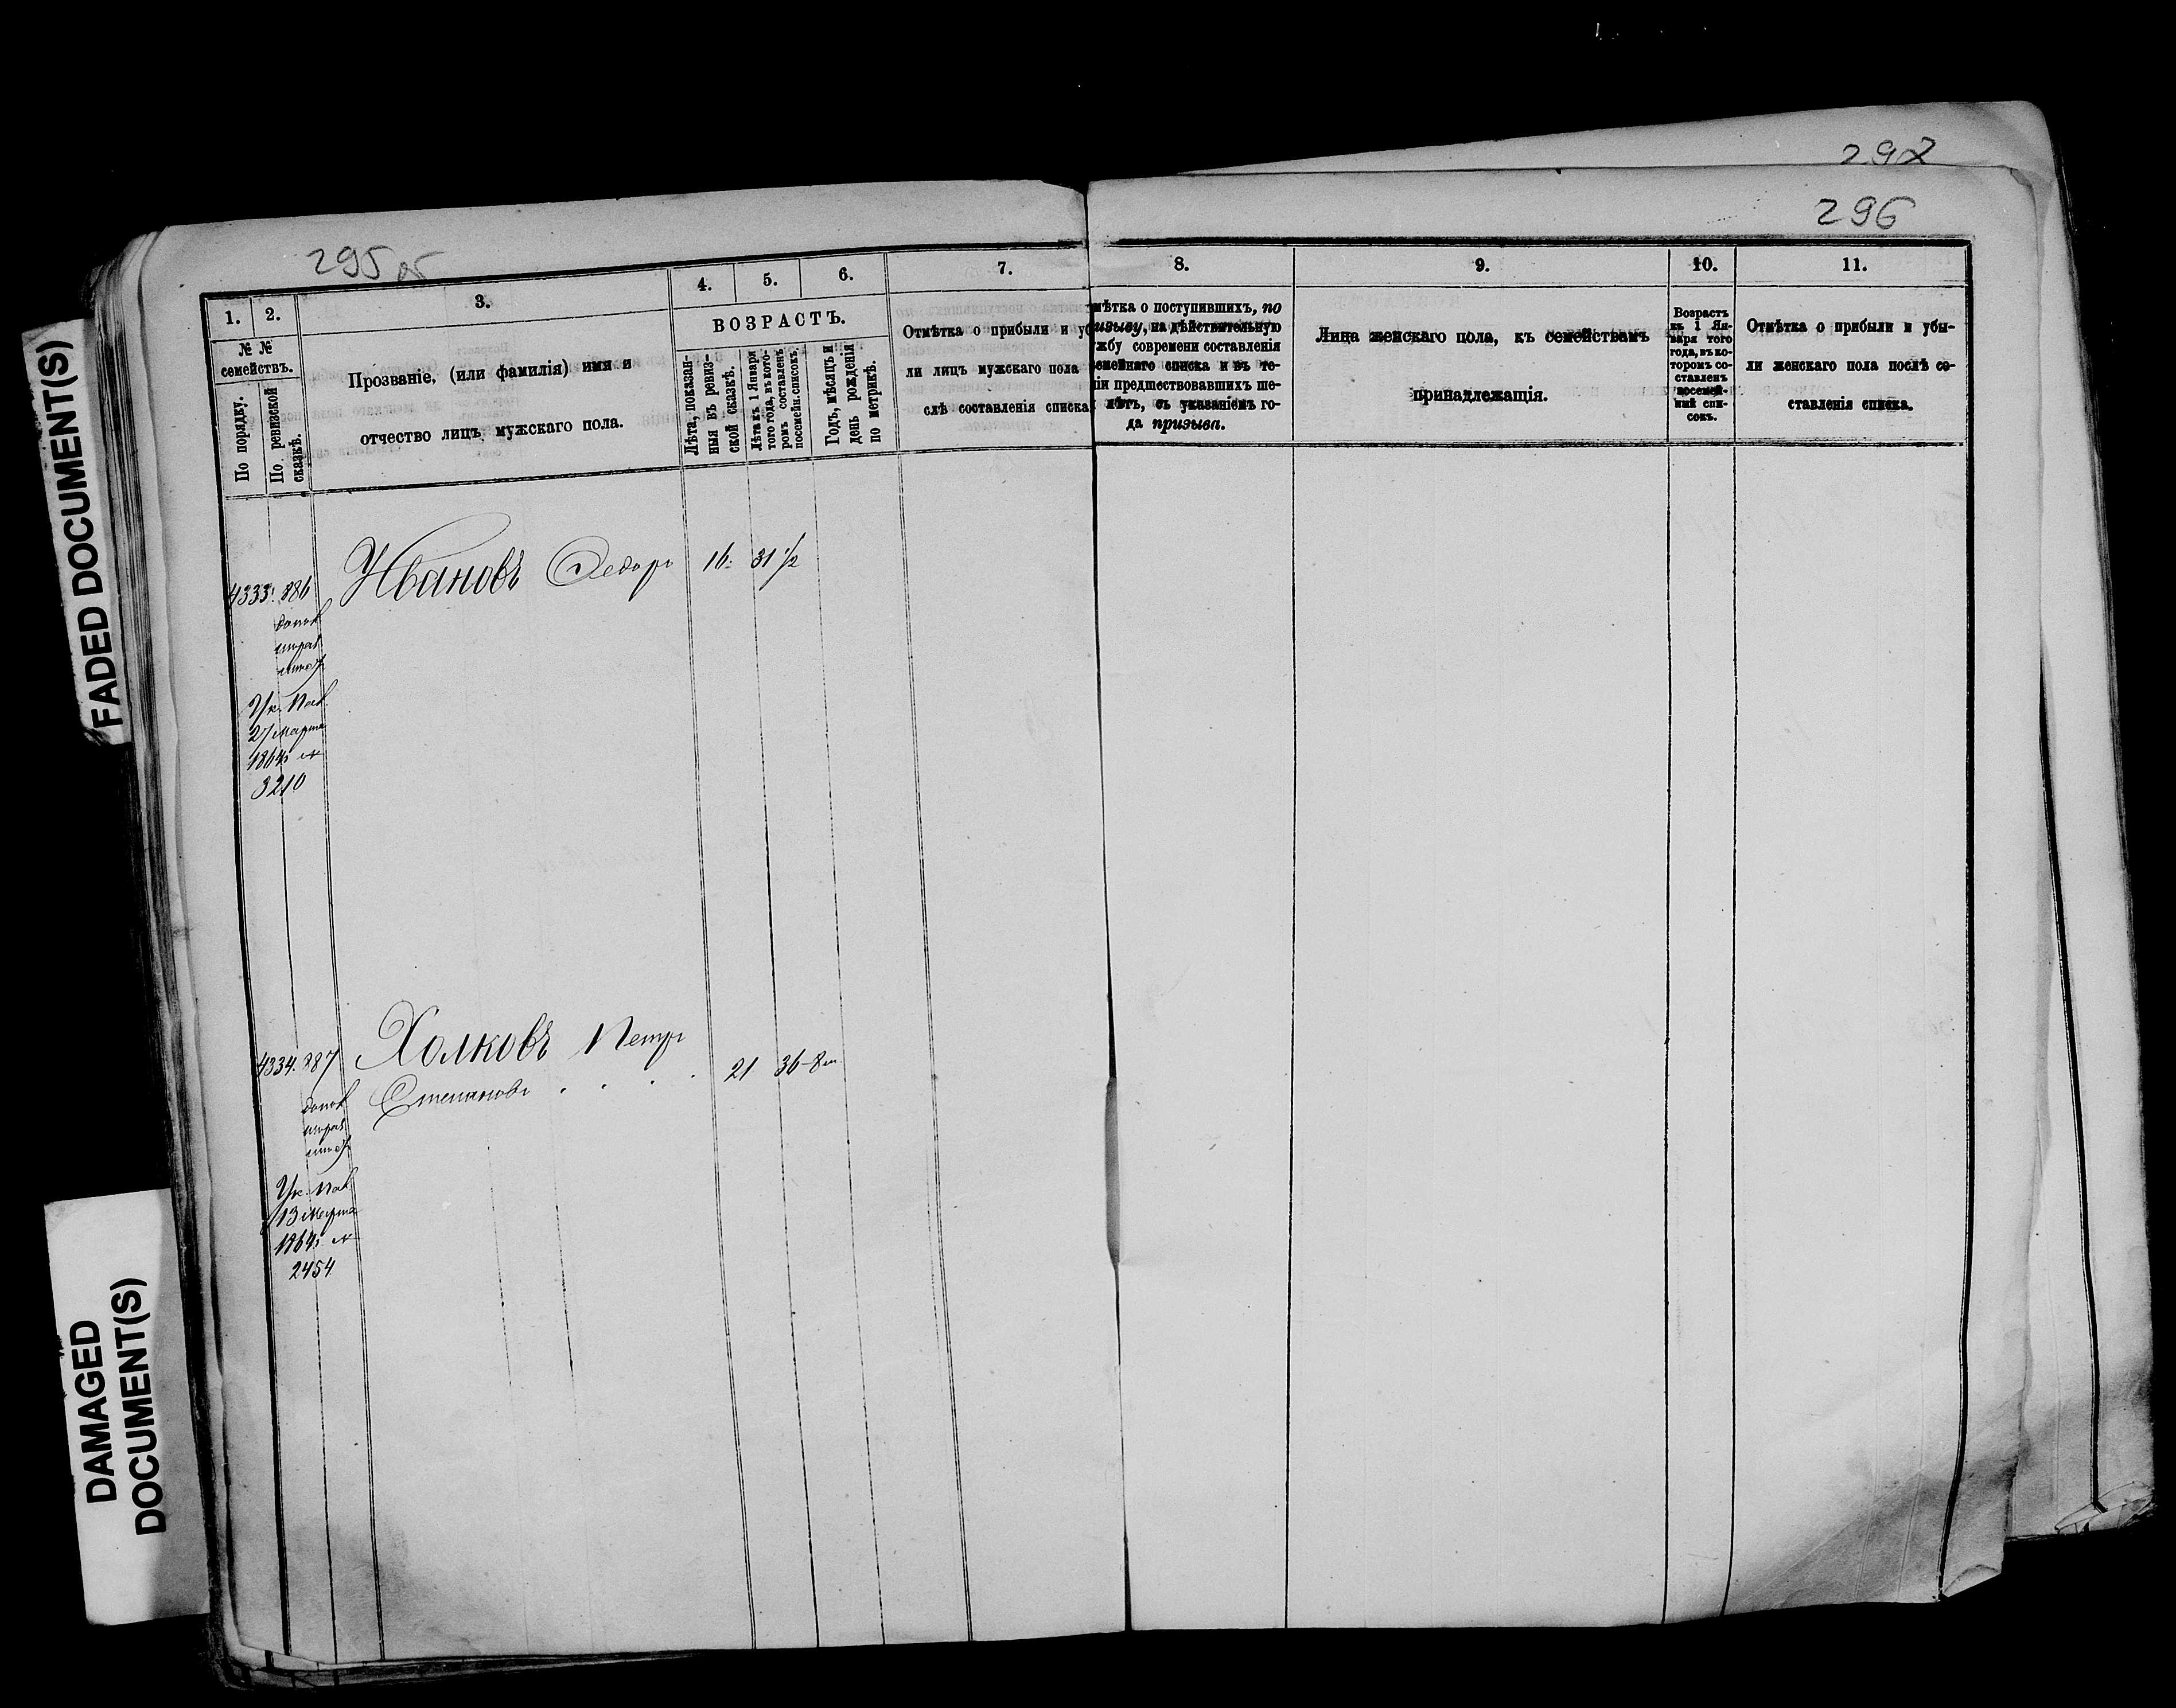 292
296
295 об
FADED DOCUMENT(S)
DAMAGED
DOCUMENT(S)
1.
2.
3.
4.
5.
6.
7.
8.
9.
10.
11.
№ №
семействъ.
По порядку.
По ревизской
сказкѣ.
Прозваніе, (или фамилія) имя и
отчество лицъ мужскаго пола.
ВОЗРАСТЪ.
Лѣта, показан-
ныя въ ревиз-
ской сказкѣ.
Лѣта къ 1 Января
того года, въ кото-
ромъ составленъ
посемейн. списокъ.
Годъ, мѣсяцъ и
день рожденія
по метрикѣ.
Отмѣтка о прибыли и уб
ли лицъ мужскаго пола
слѣ составленія списка
мѣтка о поступившихъ, по
изыву, на дѣйствительную
жбу современи составленія
емейнаго списка и въ те-
іи предшествовавшихъ ше-
лѣтъ, съ указаніемъ го-
да призыва.
Лица женскаго пола, къ семействамъ
принадлежащія.
Возрастъ
къ 1 Ян-
варя того
года, въ ко-
торомъ со-
ставленъ
посемей-
ный спи-
сокъ.
Отмѣтка о прибыли и убы-
ли женскаго пола послѣ со-
ставленія списка.
4333. 886 Ивановъ Федоръ 16. 31 1/2
Ук. Пал.
27 Марта
1864 г №
3210
4334. 887 Холковъ Петръ
Степановъ . . . . 21 36-8 м
Ук. Пал.
13 Марта
1864 г №
2454